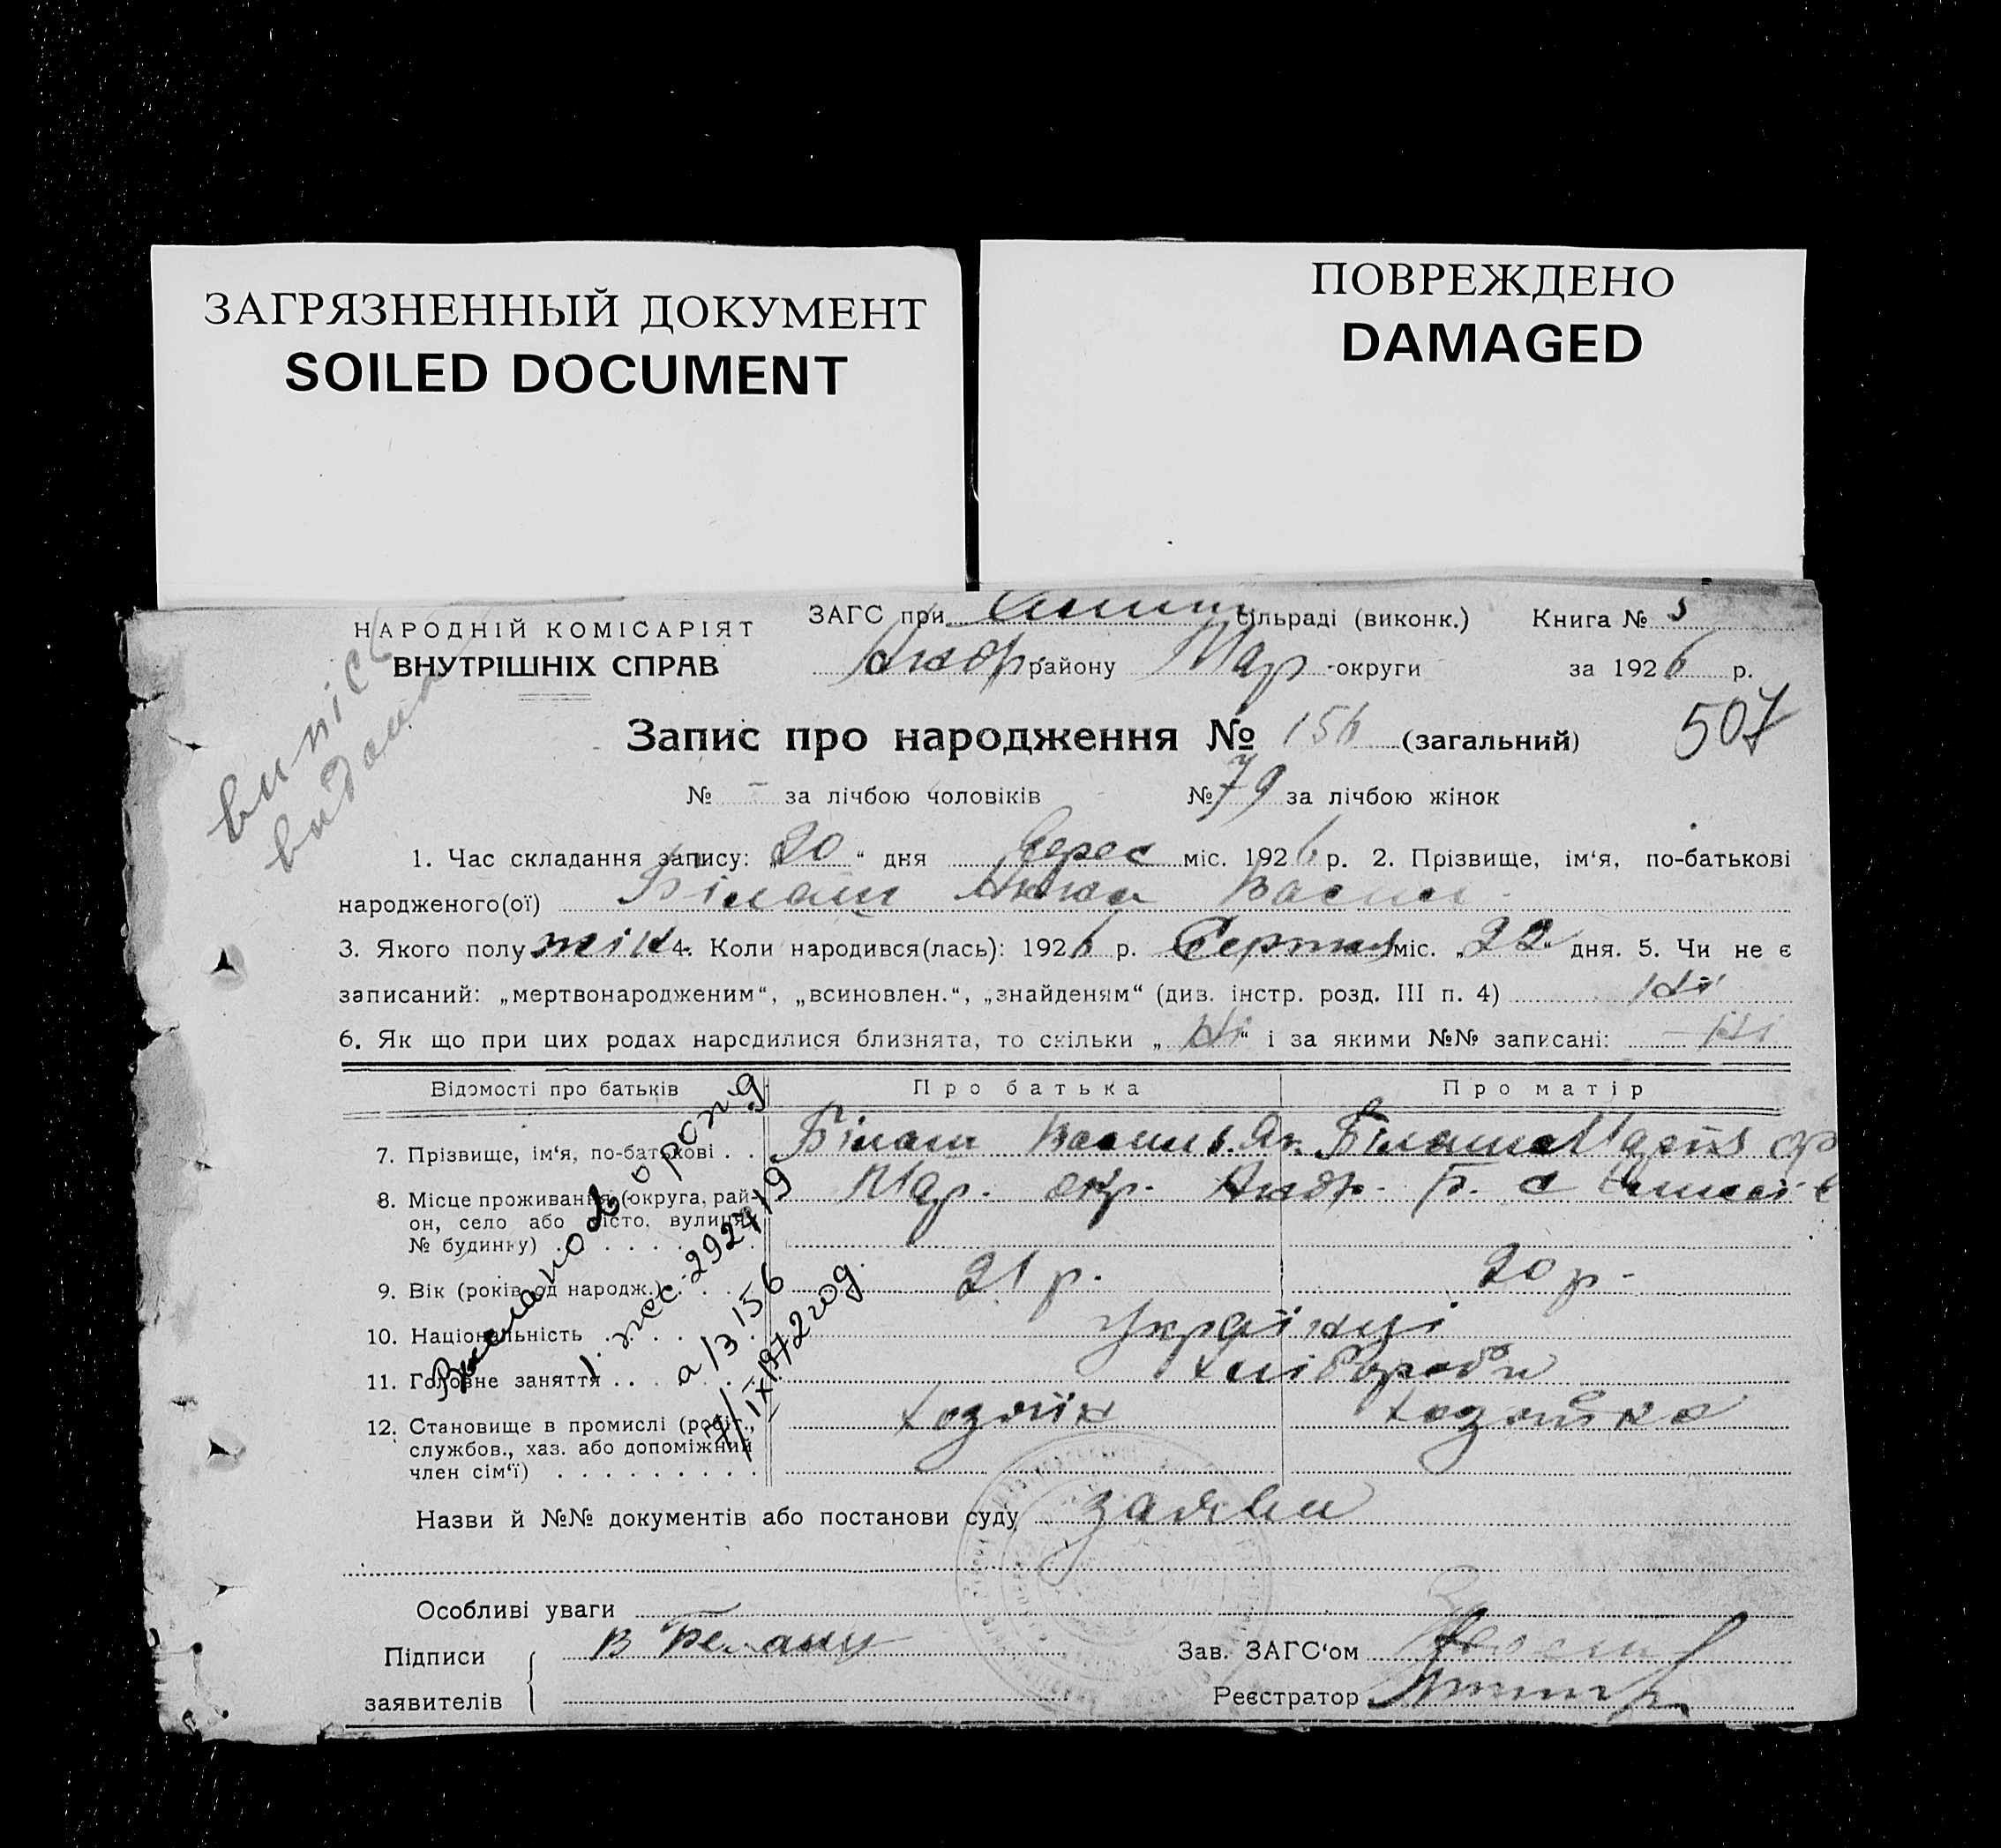 ЗАГРЯЗНЕННЫЙ ДОКУМЕНТ
SOILED DOCUMENT
ПОВРЕЖДЕНО
DAMAGED
НАРОДНІЙ КОМІСАРІЯТ
ВНУТРІШНІХ СПРАВ
ЗАГС при сільраді (виконк.) Книга №
Андр. району Мар. округи за 1926 р.
випис
видана
Запис про народження № 156 (загальний)
507
№ - за лічбою чоловіків № 79 за лічбою жінок
1. Час складання запису: „20“ дня Верес міс. 1926 р. 2. Прізвище, ім‘я, по-батькові
народженого(ої) Білаш Анна Васил
3. Якого полу жін 4. Коли народився(лась): 1926 р. Серпня міс. „22“ дня. 5. Чи не є
записаний: „мертвонародженим“, „всиновлен.“, „знайденям“ (див. інстр. розд. III п. 4) Ні
6. Як що при цих родах народилися близнята, то скільки „Ні“ і за якими №№ записані: Ні
Відомості про батьків Про батька Про матір
7. Прізвище, ім‘я, по-батькові . . Білаш Васил. Як. Білаш
8. Місце проживання (округа, рай- Мар. окр. Андр. Р. с
он, село або місто, вулиця,
№ будинку)
9. Вік (років од народж.) 21 р. 20 р.
10. Національність Українці
11. Головне заняття Хлібороби
12. Становище в промислі (робіт., Хозяїн Хозяйка
службов., хаз. або допоміжний
член сім‘ї)
о рожд
292719
а/з 156
/IX 1972 год.
Назви й №№ документів або постанови суду заяви
Особливі уваги
Підписи
заявителів
В Белаш
Зав. ЗАГС‘ом
Реєстратор